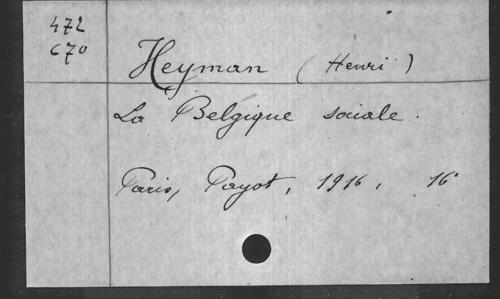 472
670
Heyman (Henri)
La Belgique sociale.
Paris, Payot, 1916, 16°